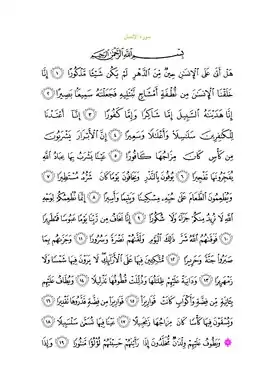 سورة الإنسان
بِسْمِ اللَّهِ الرَّحْمَٰنِ الرَّحِيمِ
هَلْ أَتَىٰ عَلَى الْإِنسَانِ حِينٌ مِّنَ الدَّهْرِ لَمْ يَكُن شَيْئًا مَّذْكُورًا ١ إِنَّا
خَلَقْنَا الْإِنسَانَ مِن نُّطْفَةٍ أَمْشَاجٍ نَّبْتَلِيهِ فَجَعَلْنَاهُ سَمِيعًا بَصِيرًا ٢
إِنَّا هَدَيْنَاهُ السَّبِيلَ إِمَّا شَاكِرًا وَإِمَّا كَفُورًا ٣ إِنَّا أَعْتَدْنَا
لِلْكَافِرِينَ سَلَاسِلَا وَأَغْلَالًا وَسَعِيرًا ٤ إِنَّ الْأَبْرَارَ يَشْرَبُونَ
مِن كَأْسٍ كَانَ مِزَاجُهَا كَافُورًا ٥ عَيْنًا يَشْرَبُ بِهَا عِبَادُ اللَّهِ
يُفَجِّرُونَهَا تَفْجِيرًا ٦ يُوفُونَ بِالنَّذْرِ وَيَخَافُونَ يَوْمًا كَانَ شَرُّهُ مُسْتَطِيرًا ٧
وَيُطْعِمُونَ الطَّعَامَ عَلَىٰ حُبِّهِ مِسْكِينًا وَيَتِيمًا وَأَسِيرًا ٨ إِنَّمَا نُطْعِمُكُمْ لِوَجْهِ
اللَّهِ لَا نُرِيدُ مِنكُمْ جَزَاءً وَلَا شُكُورًا ٩ إِنَّا نَخَافُ مِن رَّبِّنَا يَوْمًا عَبُوسًا قَمْطَرِيرًا
١٠ فَوَقَاهُمُ اللَّهُ شَرَّ ذَٰلِكَ الْيَوْمِ وَلَقَّاهُمْ نَضْرَةً وَسُرُورًا ١١ وَجَزَاهُم بِمَا
صَبَرُوا جَنَّةً وَحَرِيرًا ١٢ مُّتَّكِئِينَ فِيهَا عَلَى الْأَرَائِكِ لَا يَرَوْنَ فِيهَا شَمْسًا وَلَا
زَمْهَرِيرًا ١٣ وَدَانِيَةً عَلَيْهِمْ ظِلَالُهَا وَذُلِّلَتْ قُطُوفُهَا تَذْلِيلًا ١٤ وَيُطَافُ عَلَيْهِم
بِآنِيَةٍ مِّن فِضَّةٍ وَأَكْوَابٍ كَانَتْ قَوَارِيرَا ١٥ قَوَارِيرَ مِن فِضَّةٍ قَدَّرُوهَا تَقْدِيرًا ١٦
وَيُسْقَوْنَ فِيهَا كَأْسًا كَانَ مِزَاجُهَا زَنجَبِيلًا ١٧ عَيْنًا فِيهَا تُسَمَّىٰ سَلْسَبِيلًا ١٨
وَيَطُوفُ عَلَيْهِمْ وِلْدَانٌ مُّخَلَّدُونَ إِذَا رَأَيْتَهُمْ حَسِبْتَهُمْ لُؤْلُؤًا مَّنثُورًا ١٩ وَإِذَا